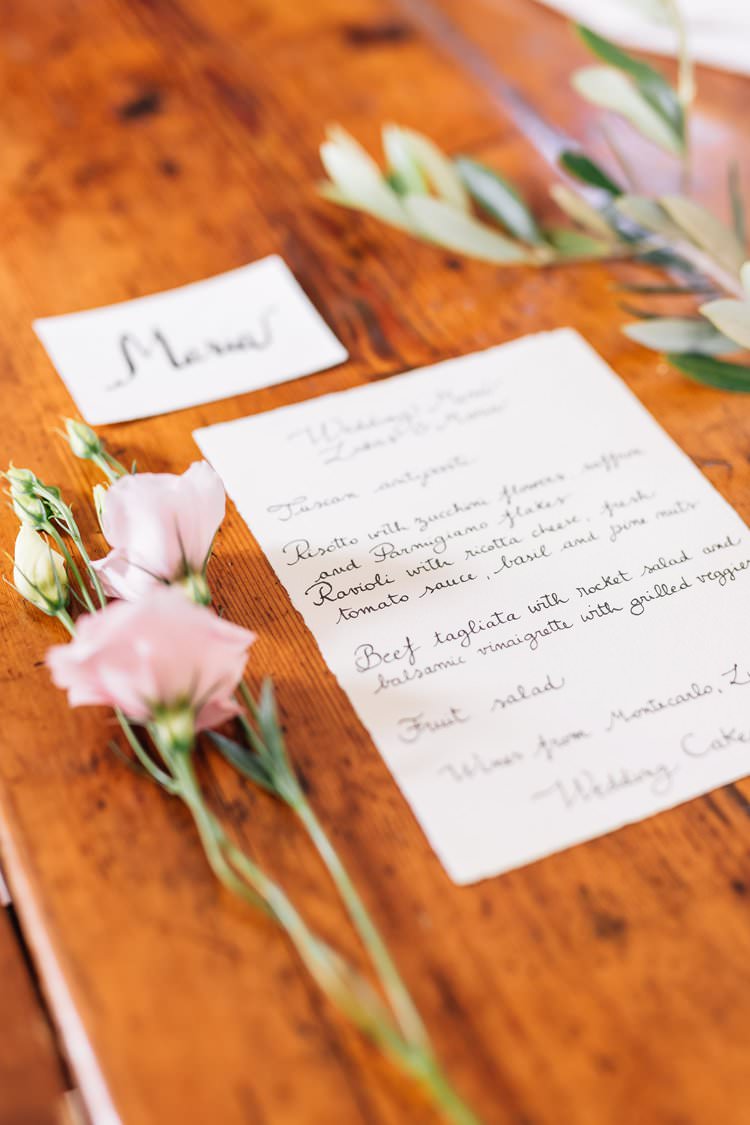 Maria
Wedding Menù
Tuscan antipasti
Risotto with zucchini flowers, saffron
and Parmigiano flakes
Ravioli with ricotta cheese, fresh
tomato sauce, basil and pine nuts
Beef tagliata with rocket salad and
balsamic vinaigrette with grilled veggies
Fruit salad
Wines from Montecarlo,
Wedding Cake